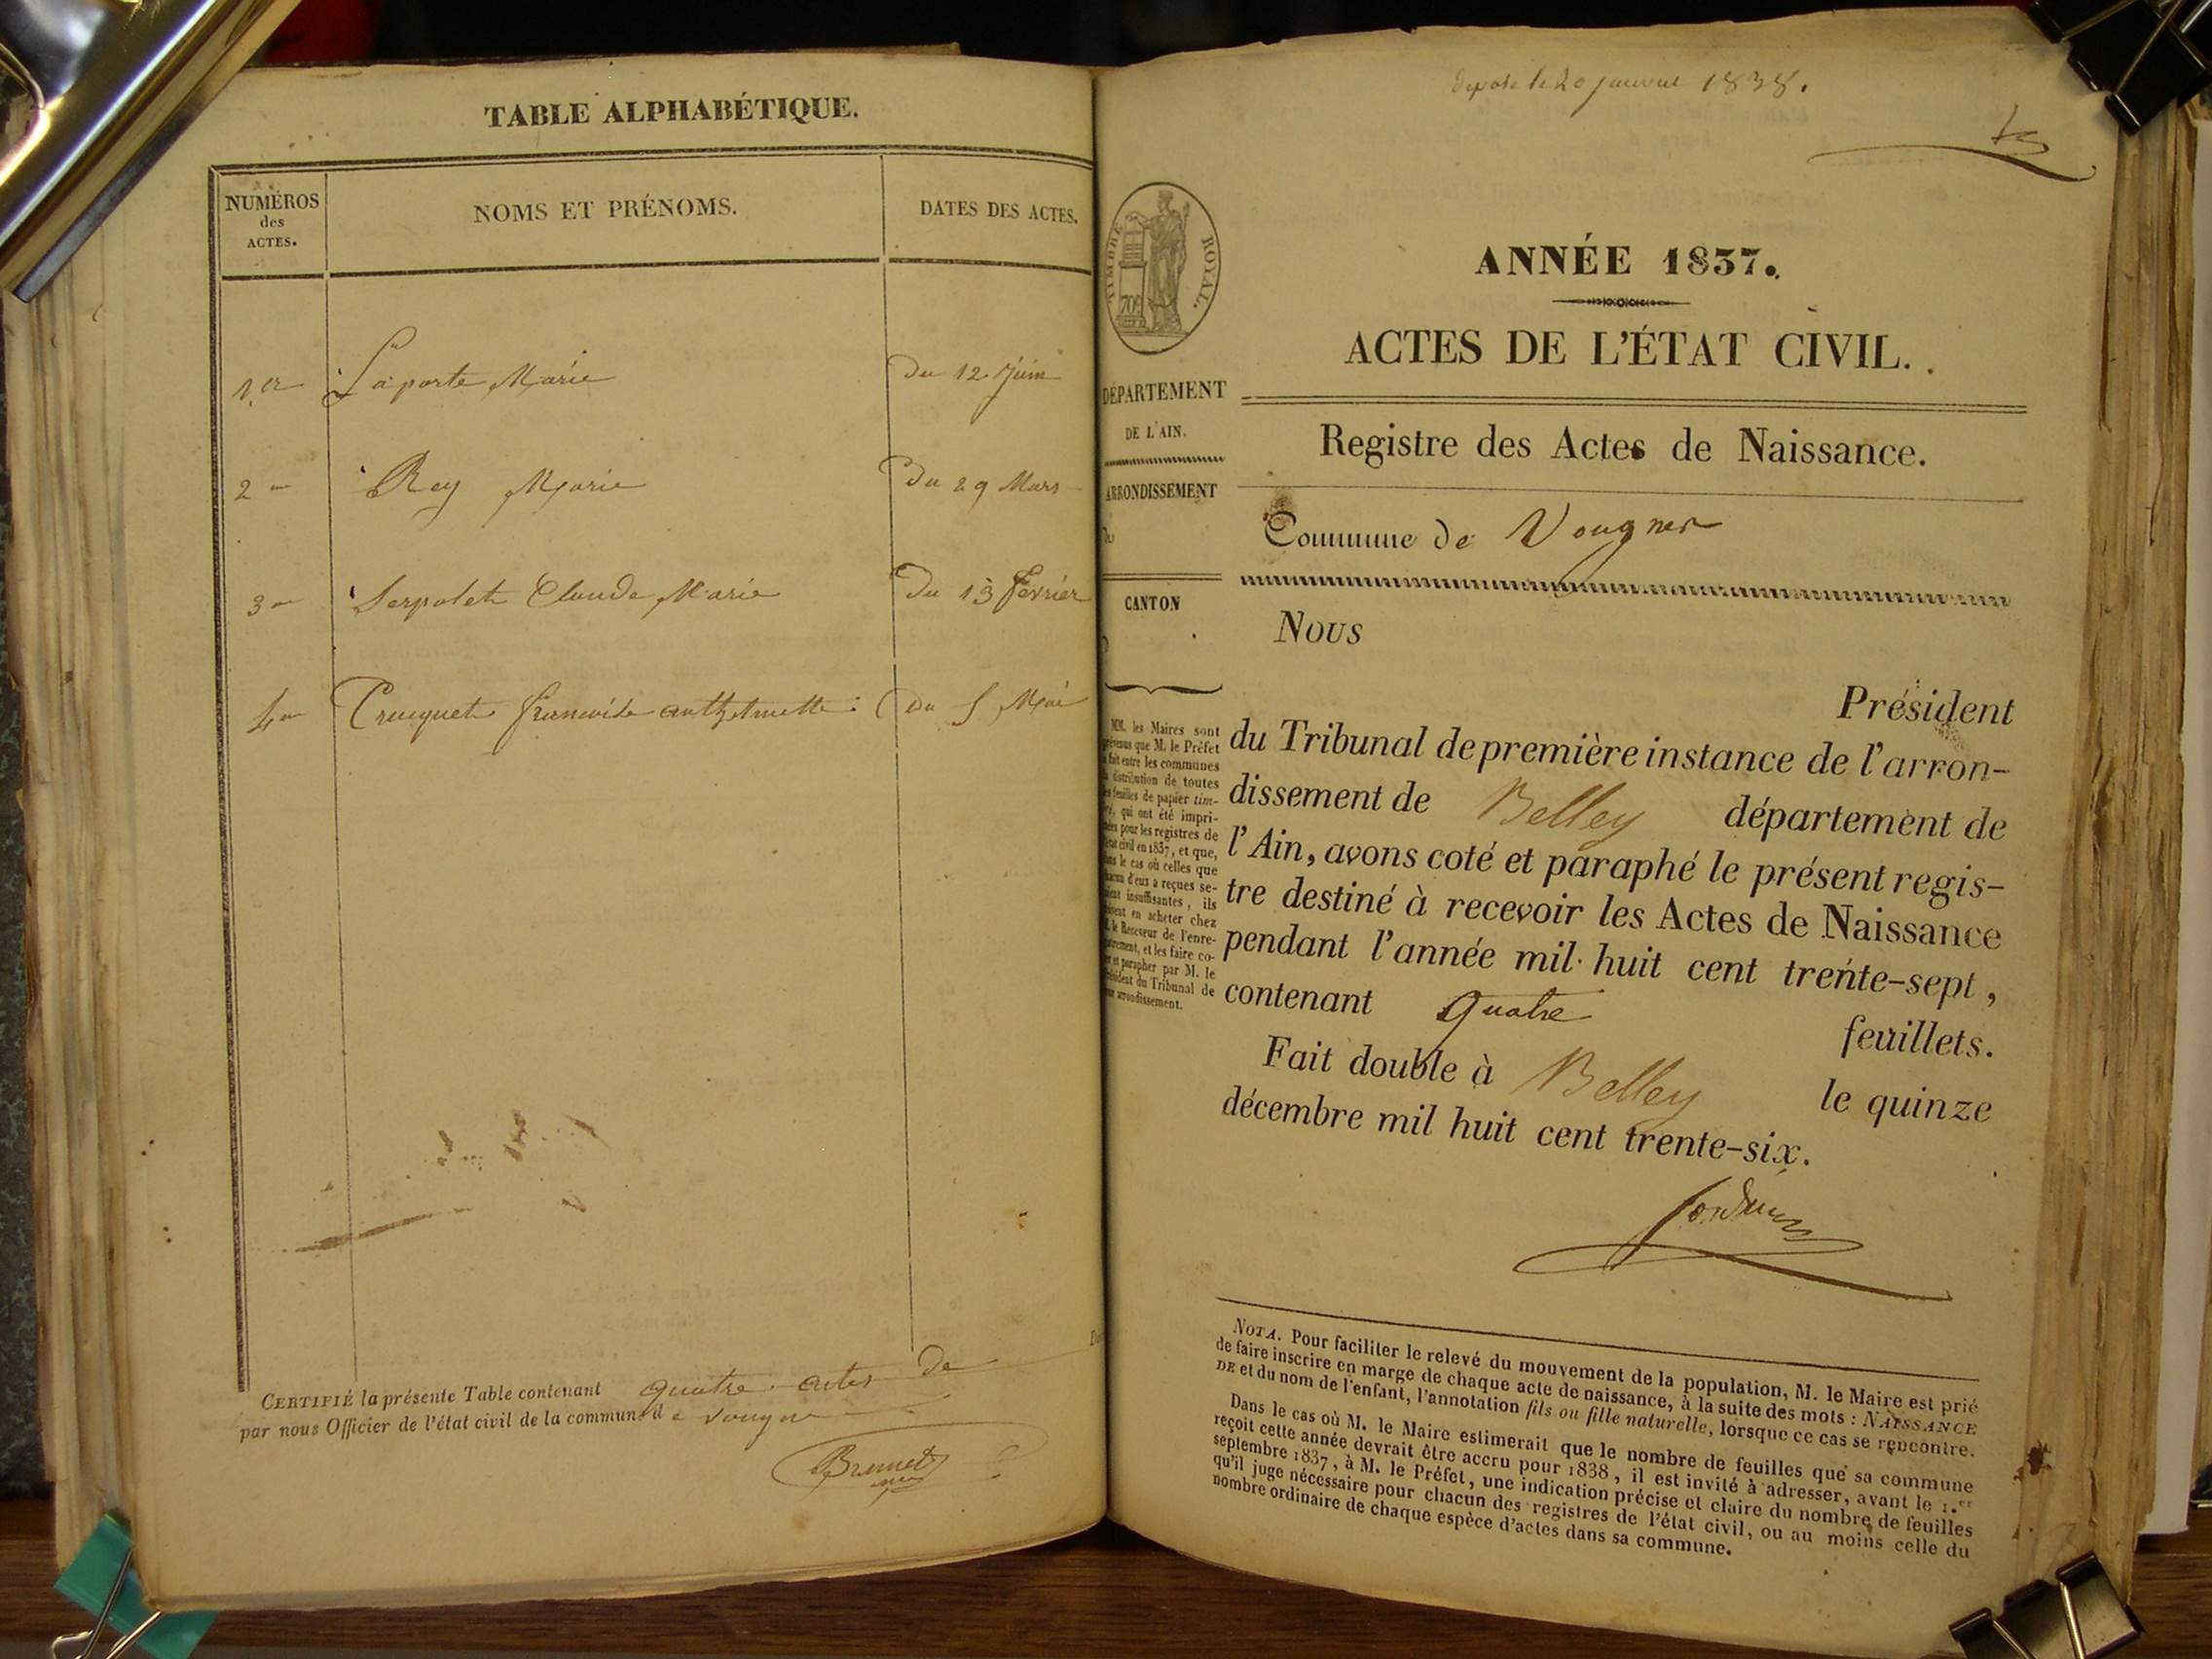 TABLE ALPHABÉTIQUE.
NUMÉROS
des
ACTES.
NOMS ET PRÉNOMS.
DATES DES ACTES.
1.er Laporte Marie Du 12 Juin
2 Rey Marie Du 29 Mars
3 Serpolet Claude Marie Du 13 février
4 francoise Du 5 Mai
CERTIFIÉ la présente Table contenant quatre actes De
par nous Officier de l'état civil de la commune de
déposé le 20 janvier 1838.
TIMBRE ROYAL.
70c
ANNÉE 1837.
ACTES DE L'ÉTAT CIVIL.
DÉPARTEMENT
DE L'AIN.
Registre des Actes de Naissance.
ARRONDISSEMENT
Commune de Vougnes
CANTON
Nous
Président
du Tribunal de première instance de l'arron-
dissement de Belley département de
l'Ain, avons coté et paraphé le présent regis-
tre destiné à recevoir les Actes de Naissance
pendant l'année mil huit cent trente-sept,
contenant quatre feuillets.
Fait double à Belley le quinze
décembre mil huit cent trente-six.
MM. les Maires sont
que M. le Préfet
fait entre les communes
distribution de toutes
feuilles de papier tim-
qui ont été impri-
pour les registres de
civil en 1837, et que,
le cas où celles que
d'eux a reçues se-
insuffisantes, ils
en acheter chez
le Receveur de l'enre-
et les faire co-
et parapher par M. le
du Tribunal de
arrondissement.
NOTA. Pour faciliter le relevé du mouvement de la population, M. le Maire est prié
de faire inscrire en marge de chaque acte de naissance, à la suite des mots : NAISSANCE
DE et du nom de l'enfant, l'annotation fils ou fille naturelle, lorsque ce cas se rencontre.
Dans le cas où M. le Maire estimerait que le nombre de feuilles que sa commune
reçoit cette année devrait être accru pour 1838, il est invité à adresser, avant le 1.er
septembre 1837, à M. le Préfet, une indication précise et claire du nombre de feuilles
qu'il juge nécessaire pour chacun des registres de l'état civil, ou au moins celle du
nombre ordinaire de chaque espèce d'actes dans sa commune.